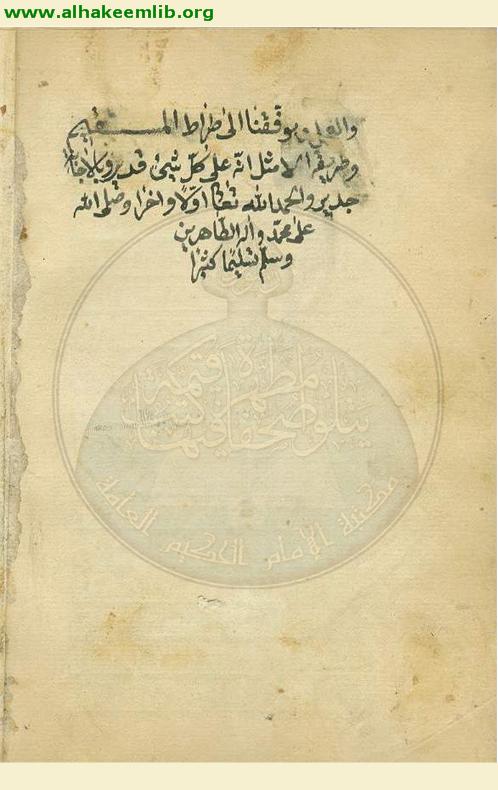 www.alhakeemlib.org
يوفقنا الى طراط المستقيم
وطريقه الامثل انه على كل شئ قدير وبالاجابة
جدير والحمد لله تعالى اولا واخرا وصلى الله
على محمد واله الطاهرين
وسلم تسليما كثيرا
يتلو صحفا مطهرة فيها كتب قيمة
مكتبة الإمام الحكيم العامة